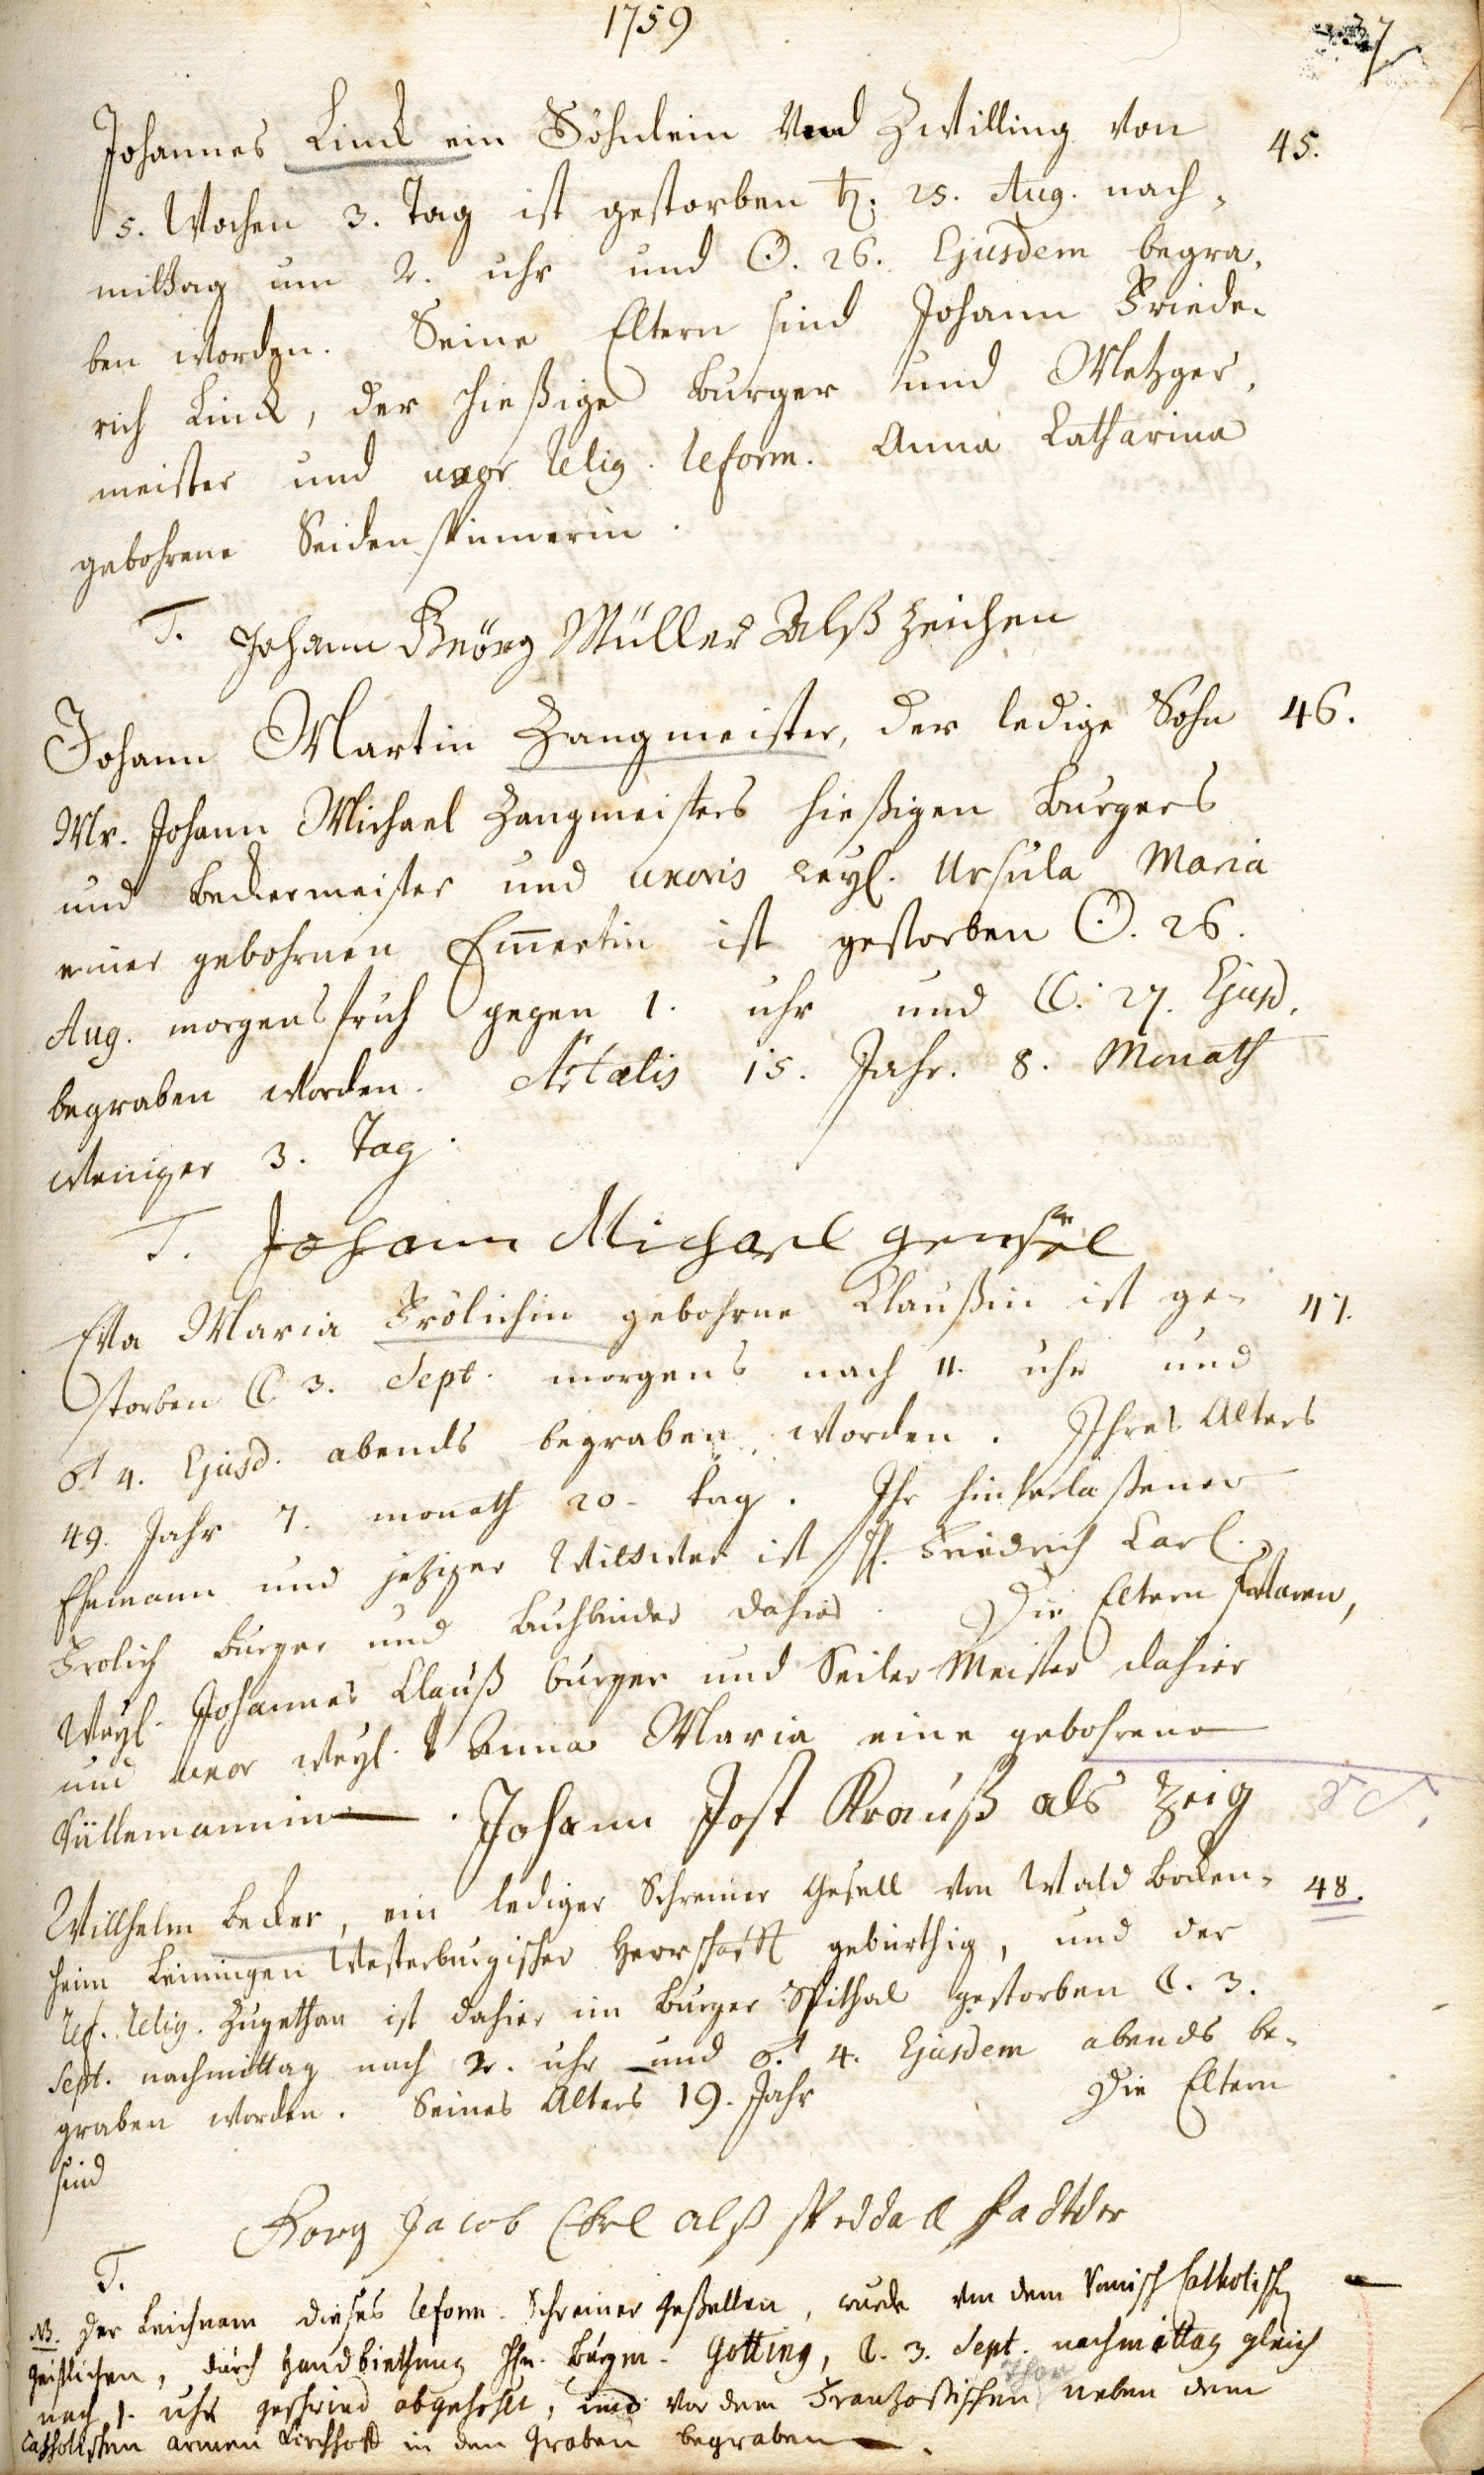 1759
37
Johannes Linck ein Söhnlein und Zwilling von 45.
5. Wochen 3. Tag ist gestorben ♄. 25. Aug. nach-
mittag um 2. uhr und ☉. 26. Ejusdem begra-
ben worden. Seine Eltern sind Johann Friede-
rich Linck, der hießige Burger und Metzger-
meister und uxor Relig. Reform. Anna Catharina
gebohrene Seidenspinnerin.
T. Johann Geörg Müller Alß Zeichen
Johann Martin Zangmeister, der ledige Sohn 46.
Mr. Johann Michael Zangmeisters hießigen Burgers
und Beckermeister und uxoris weyl. Ursula Maria
einer gebohrnen Em̄ertin ist gestorben ☉. 26.
Aug. morgens früh gegen 1. uhr und ☾. 27. Ejusd.
begraben worden. Aetatis 15. Jahr. 8. Monath
weniger 3. Tag.
T. Johann Michael
Eva Maria Frölichin gebohrne Claußin ist ge- 47.
storben ☾ 3. Sept. morgens nach 11. uhr und
♂ 4. Ejusd. abends begraben worden. Ihres Alters
49. Jahr 7. monath 20. tag. Ihr hinterlaßener
Ehemann und jetziger Wittwer ist H. Friedrich Carl
Frölich Burger und Buchbinder dahier. Die Eltern waren,
Weyl. Johannes Clauß Burger und Seiler Meister dahier
und uxor weyl. Anna Maria eine gebohrene
Süllemannin. Johann Jost Krauß als Zeig
Willhelm Becker, ein lediger Schreiner Gesell von Wald Bocken- 48.
heim Leiningen Westerburgischer Herrschafft gebürthig, und der
Ref. Relig. Zugethan ist dahier im Burger Spithal gestorben ☾. 3.
Sept. nachmittag nach 2. uhr und ♂. 4. Ejusdem abends be-
graben worden. Seines Alters 19. Jahr Die Eltern
sind
Jacob alß
T.
NB. Der Leichnam dieses Reform. Schreiner Gesellen, wurde von dem Römisch Catholischen
Geistlichen, durch Handbiethung Hn. Burgm. Gotting, ☾. 3. Sept. nachmittag gleich
nach 1. uhr abgehohlt, und vor dem Frantzösischen Thor neben dem
Catholischen armen Kirchhoff in den Graben begraben.